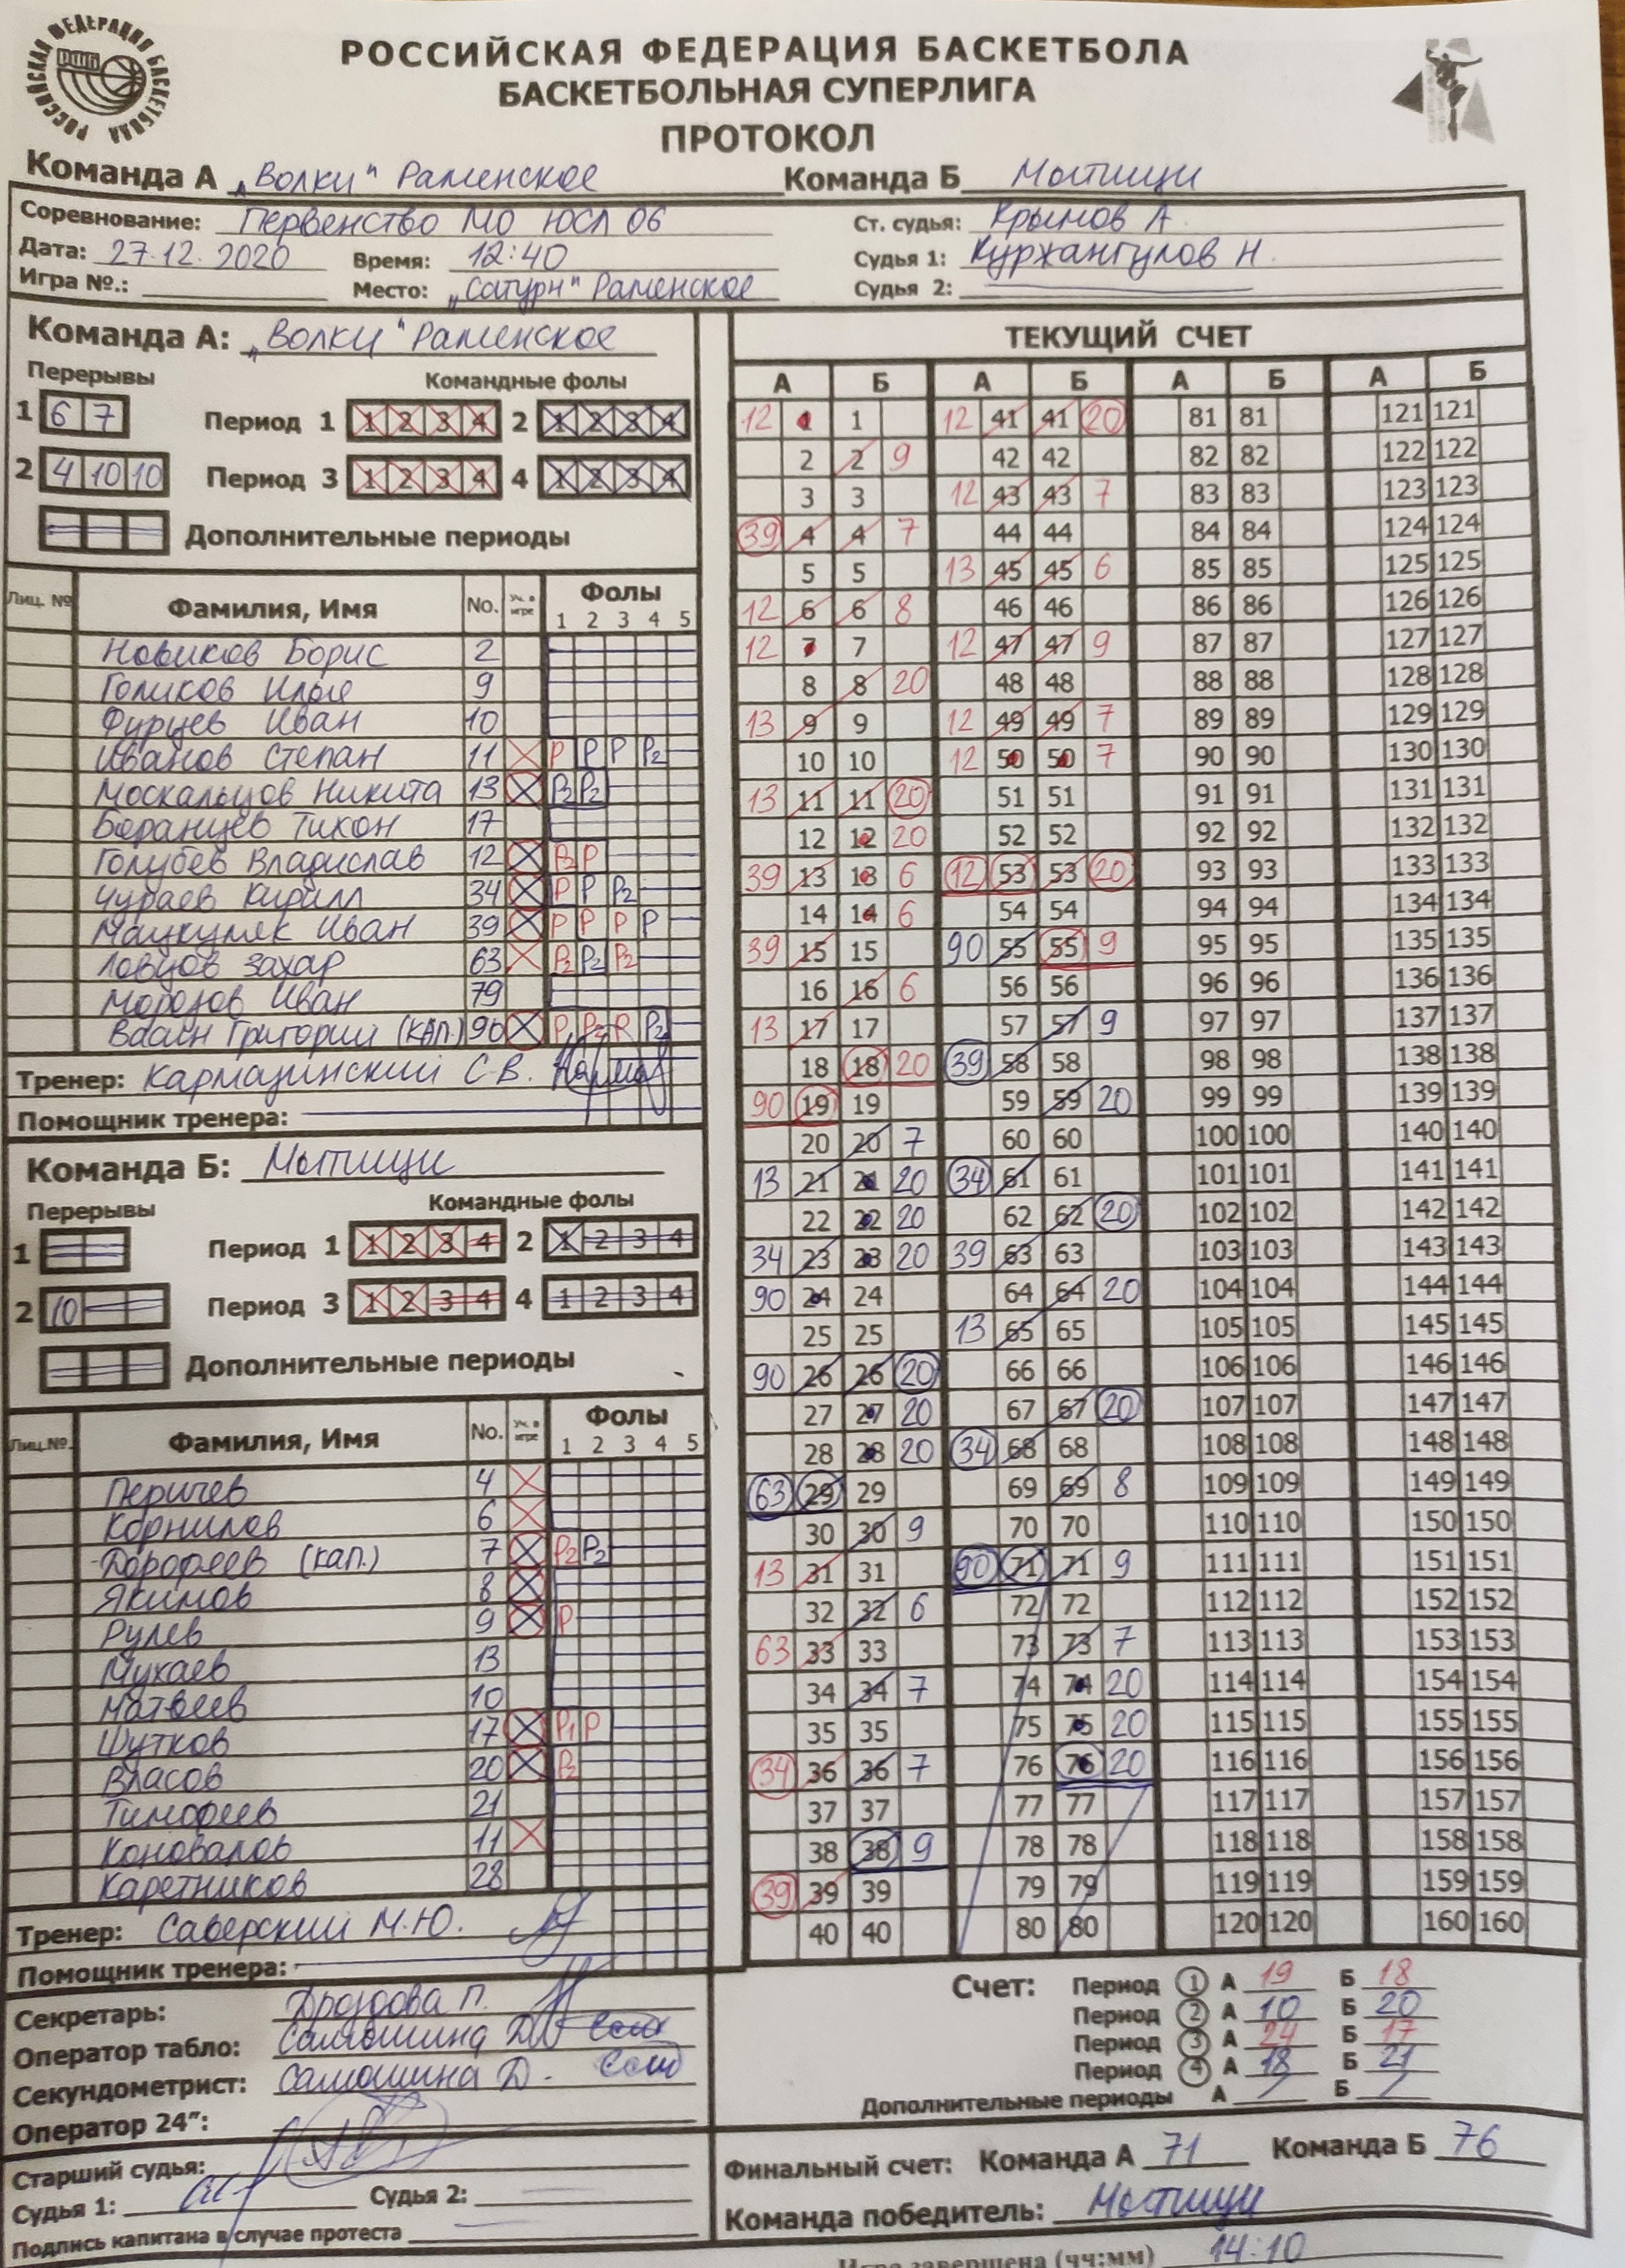 РОССИЙСКАЯ ФЕДЕРАЦИЯ БАСКЕТБОЛА
РФБ
РОССИЙСКАЯ ФЕДЕРАЦИЯ БАСКЕТБОЛА
БАСКЕТБОЛЬНАЯ СУПЕРЛИГА
ПРОТОКОЛ
Команда А „Волки" Раменское Команда Б Мытищи
Соревнование: Первенство МО ЮСЛ 06 Ст. судья: Крымов А.
Дата: 27.12.2020 Время: 12:40 Судья 1: Курхангулов Н.
Игра №.: Место: „Сатурн" Раменское Судья 2:
Команда А: „Волки" Раменское
Перерывы Командные фолы
1 6 7 Период 1 1 2 3 4 2 1 2 3 4
2 4 10 10 Период 3 1 2 3 4 4 1 2 3 4
Дополнительные периоды
Лиц. № Фамилия, Имя No. Уч. в игре Фолы 1 2 3 4 5
Новиков Борис 2
Голиков Илья 9
Фурцев Иван 10
Иванов Степан 11 P P P P2
Москальцов Никита 13 P2 P2
Баранцев Тихон 17
Голубев Владислав 12 P2 P
Чураев Кирилл 34 P P P2
Мацкуляк Иван 39 P P P P
Ловцов Захар 63 P2 P2 P2
Морозов Иван 79
Васин Григорий (КАП.) 90
Тренер: Кармацинский С.В.
Помощник тренера:
Команда Б: Мытищи
Перерывы Командные фолы
1 Период 1 1 2 3 4 2 1 2 3 4
2 10 Период 3 1 2 3 4 4 1 2 3 4
Дополнительные периоды
Лиц.№. Фамилия, Имя No. Уч. в игре Фолы 1 2 3 4 5
4
Корнилов 6
Дорофеев (кап.) 7 P2 P2
Якимов 8
Рулев 9 P
Мухаев 13
Матвеев 10
Шутков 17 P1 P
Власов 20 P2
Тимофеев 21
Коновалов 11
Каретников 28
Тренер: Саверский М.Ю.
Помощник тренера:
Секретарь: Дроздова П.
Оператор табло: Самошина Д.
Секундометрист: Самошина Д.
Оператор 24":
Старший судья:
Судья 1: Судья 2:
Подпись капитана в случае протеста
ТЕКУЩИЙ СЧЕТ
А Б А Б А Б А Б
12 1 1 12 41 41 20 81 81 121 121
2 2 9 42 42 82 82 122 122
3 3 12 43 43 7 83 83 123 123
39 4 4 7 44 44 84 84 124 124
5 5 13 45 45 6 85 85 125 125
12 6 6 8 46 46 86 86 126 126
12 7 7 12 47 47 9 87 87 127 127
8 8 20 48 48 88 88 128 128
13 9 9 12 49 49 7 89 89 129 129
10 10 12 50 50 7 90 90 130 130
13 11 11 20 51 51 91 91 131 131
12 12 20 52 52 92 92 132 132
39 13 13 6 12 53 53 20 93 93 133 133
14 14 6 54 54 94 94 134 134
39 15 15 90 55 55 9 95 95 135 135
16 16 6 56 56 96 96 136 136
13 17 17 57 57 9 97 97 137 137
18 18 20 39 58 58 98 98 138 138
90 19 19 59 59 20 99 99 139 139
20 20 7 60 60 100 100 140 140
13 21 21 20 34 61 61 101 101 141 141
22 22 20 62 62 20 102 102 142 142
34 23 23 20 39 63 63 103 103 143 143
90 24 24 64 64 20 104 104 144 144
25 25 13 65 65 105 105 145 145
90 26 26 20 66 66 106 106 146 146
27 27 20 67 67 20 107 107 147 147
28 28 20 34 68 68 108 108 148 148
63 29 29 69 69 8 109 109 149 149
30 30 9 70 70 110 110 150 150
13 31 31 90 71 71 9 111 111 151 151
32 32 6 72 72 112 112 152 152
63 33 33 73 73 7 113 113 153 153
34 34 7 74 74 20 114 114 154 154
35 35 75 75 20 115 115 155 155
34 36 36 7 76 76 20 116 116 156 156
37 37 77 77 117 117 157 157
38 38 9 78 78 118 118 158 158
39 39 39 79 79 119 119 159 159
40 40 80 80 120 120 160 160
Счет: Период 1 А 19 Б 18
Период 2 А 10 Б 20
Период 3 А 24 Б 17
Период 4 А 18 Б 21
Дополнительные периоды А Б
Финальный счет: Команда А 71 Команда Б 76
Команда победитель: Мытищи
Игра завершена (чч:мм) 14:10